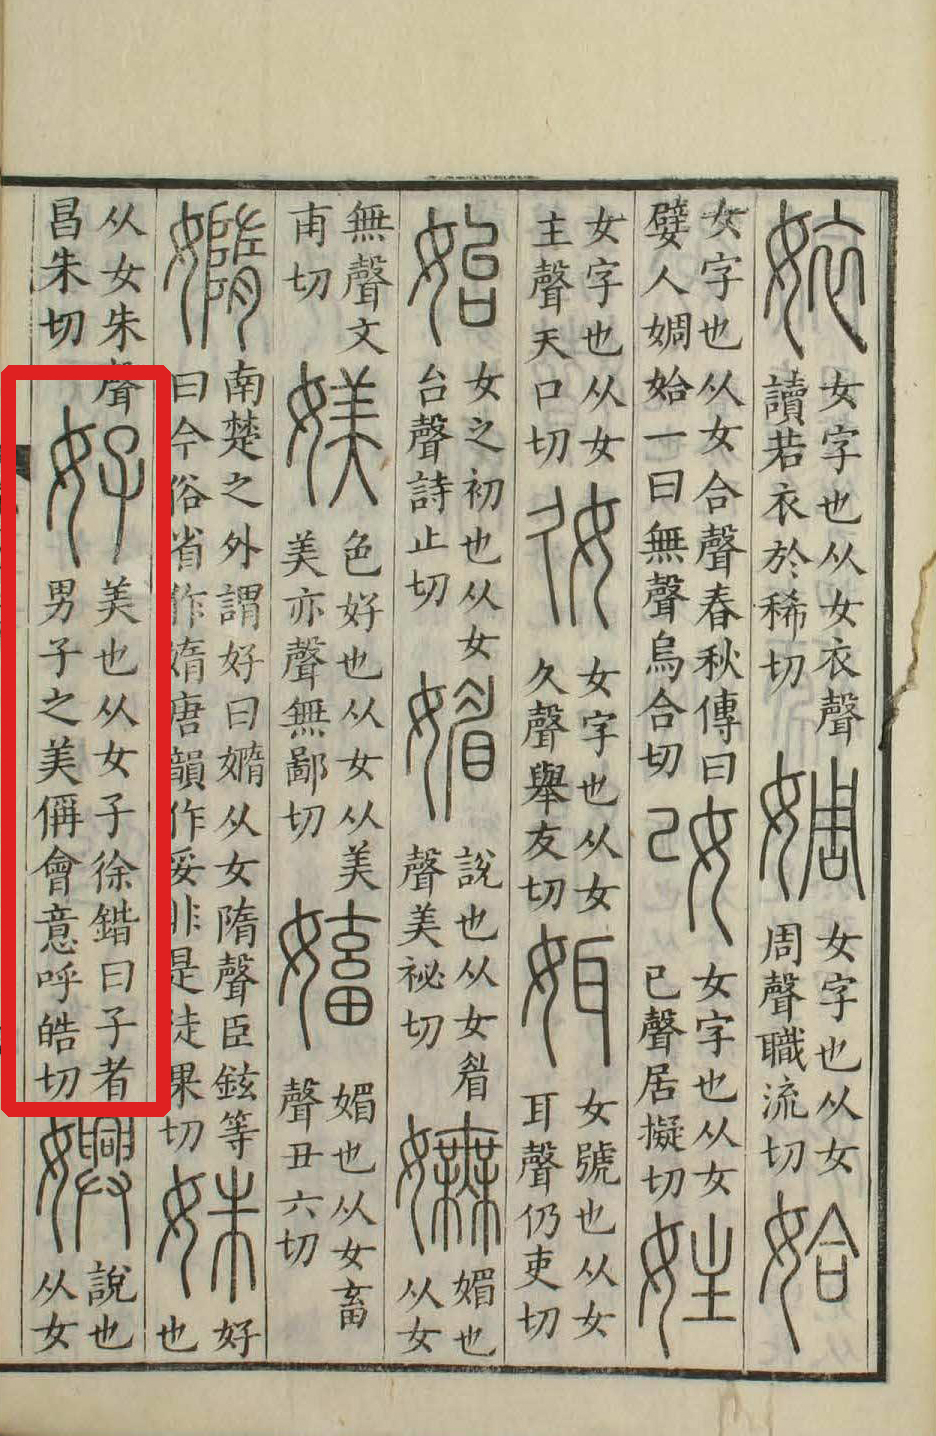 㛄女字也从女衣聲讀若衣於稀切婤女字也从女周聲職流切姶
女字也从女合聲春秋傳曰嬖人婤姶一曰無聲烏合切改女字也从女己聲居擬切妵
女字也从女主聲天口切㚮女字也从女久聲舉友切㛅女號也从女耳聲仍吏切
始女之初也从女台聲詩止切媚說也从女眉聲美祕切嫵媚也从女
無聲文甫切媄色好也从女从美美亦聲無鄙切嬌媚也从女畜聲丑六切
嫷南楚之外謂好曰嫷从女隋聲臣鉉等曰今俗省作媠唐韻作妥非是徒果切姝好也
从女朱聲昌朱切好美也从女子徐鍇曰子者男子之美偁會意呼皓切嬹說也从女